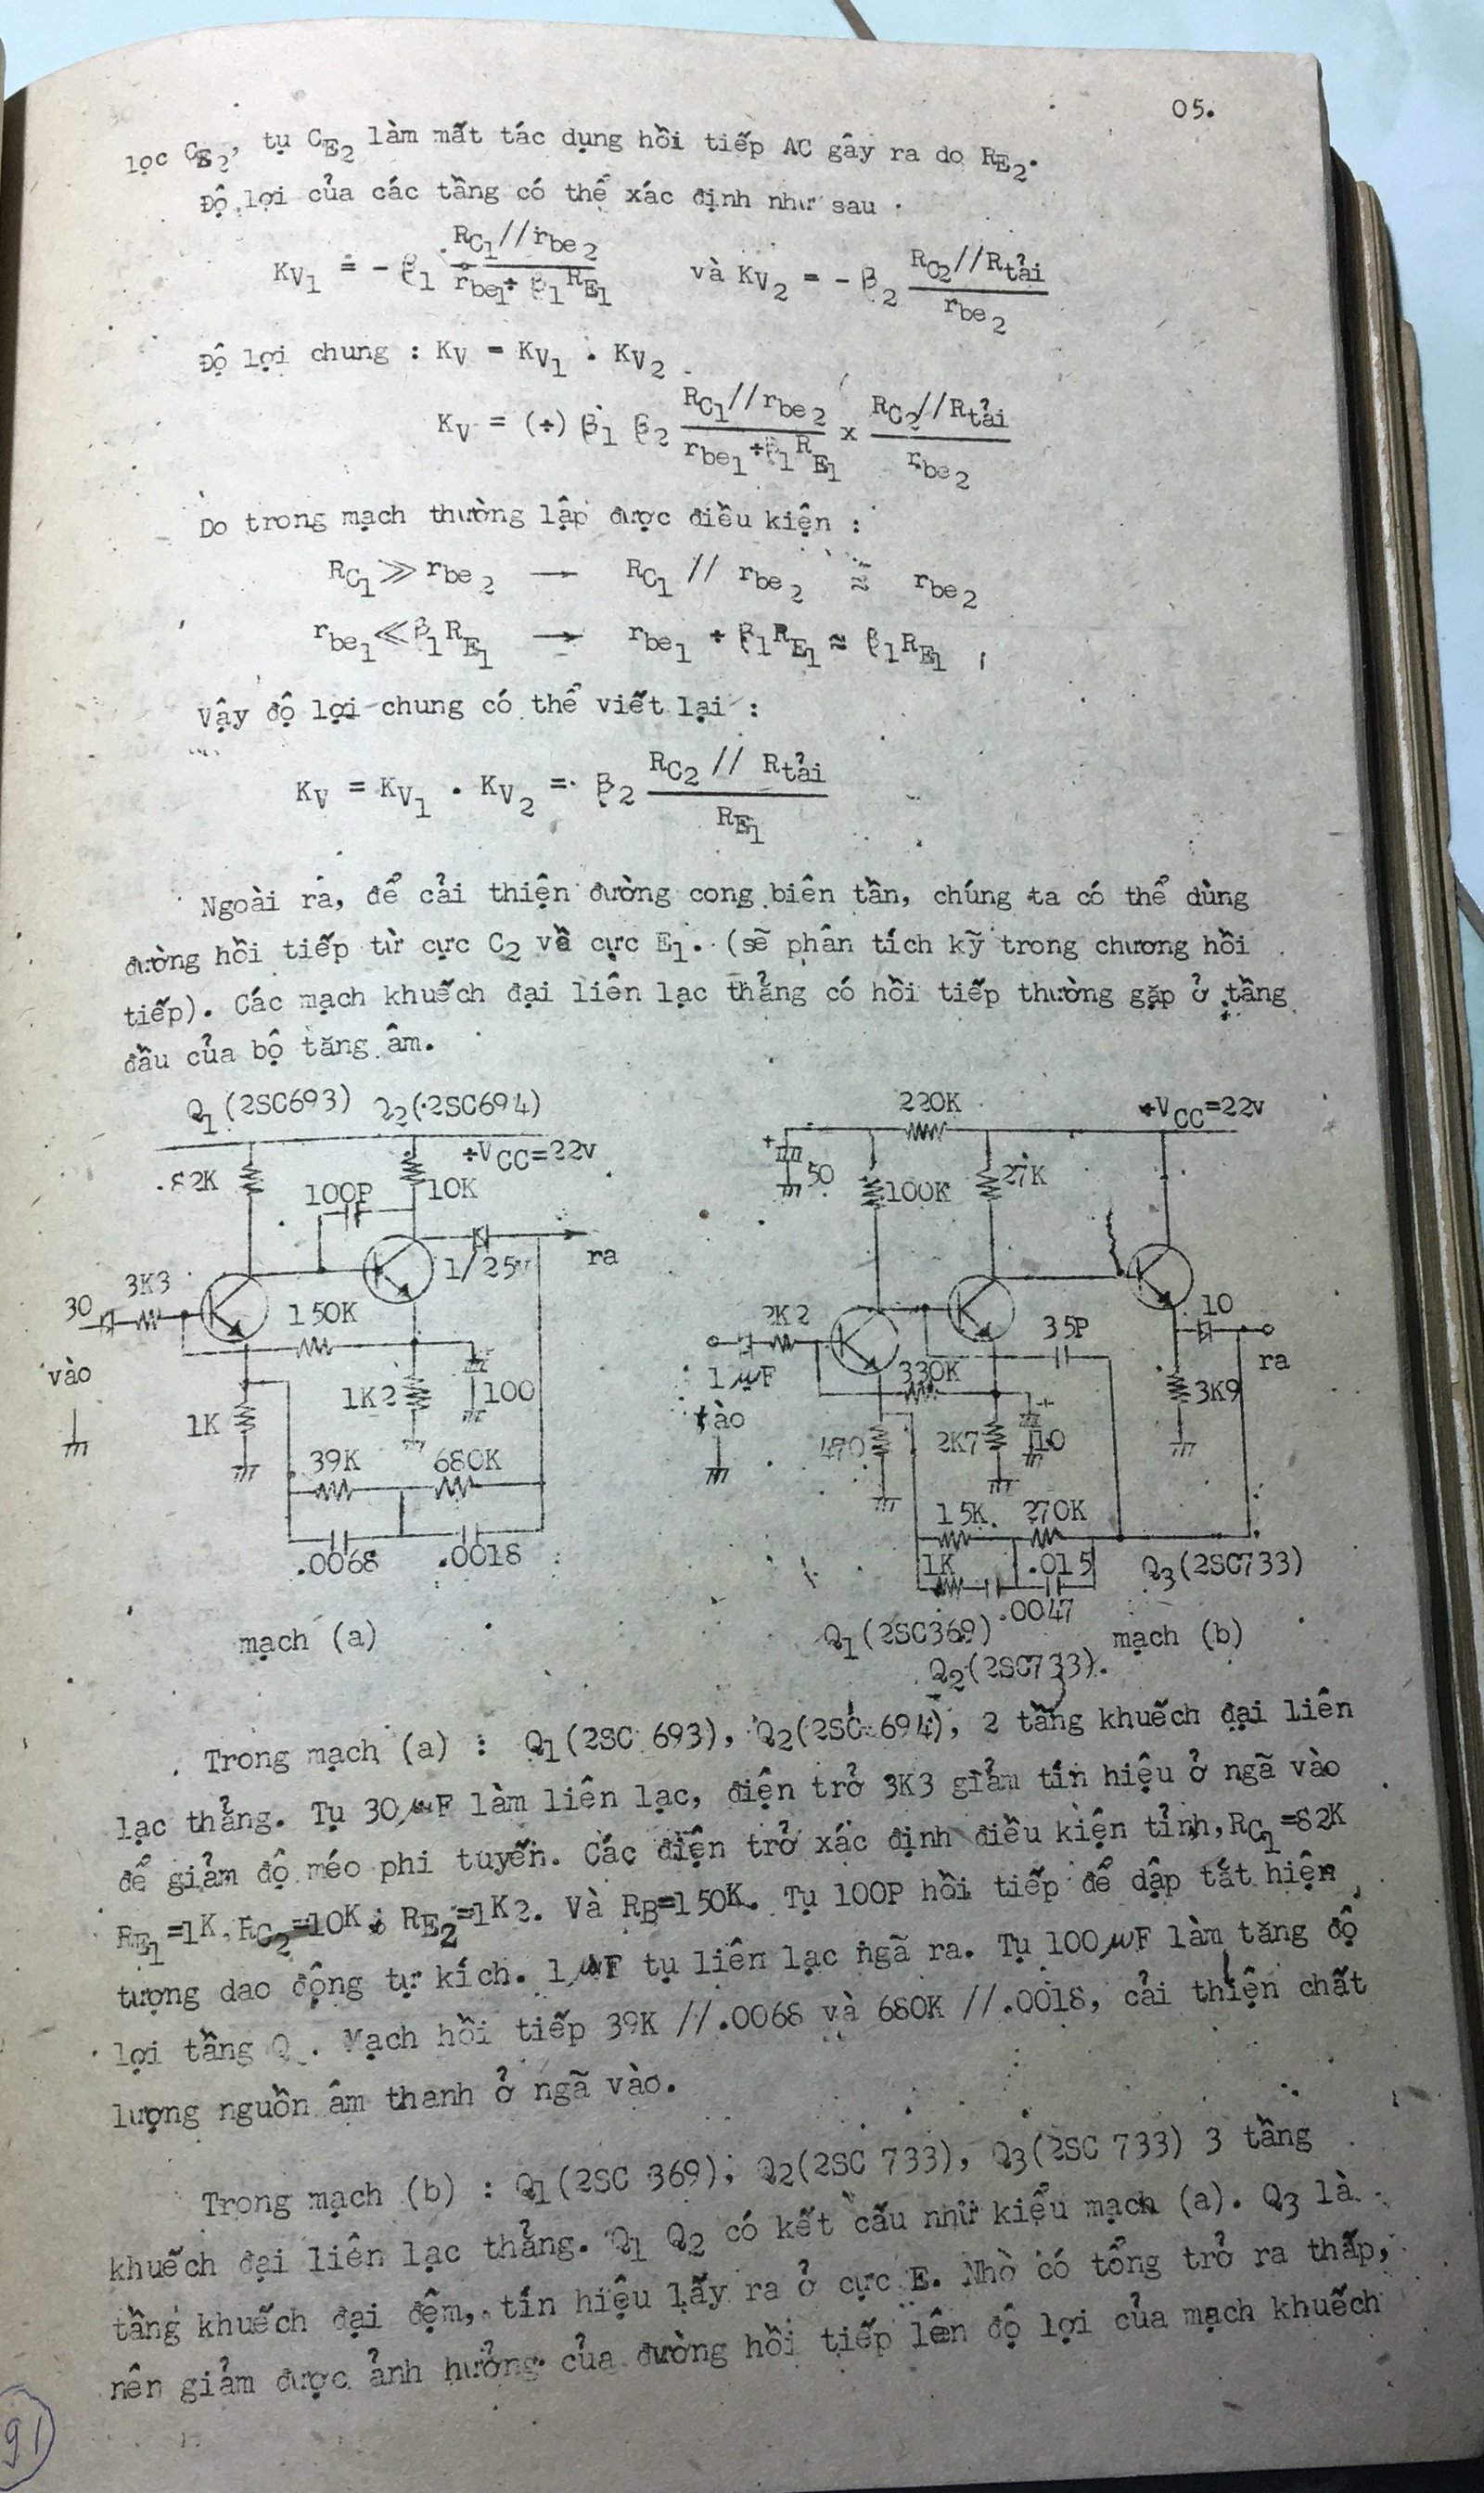 05.
lọc CE2, tụ CE2 làm mất tác dụng hồi tiếp AC gây ra do RE2.
Độ lợi của các tầng có thể xác định như sau .
KV1 = - β1 RC1//rbe2 / rbe1+ β1RE1 và KV2 = - β2 RC2//Rtải / rbe2
Độ lợi chung : KV = KV1 . KV2
KV = (+) β1 β2 RC1//rbe2 / rbe1 +β1RE1 x RC2//Rtải / rbe2
Do trong mạch thường lập được điều kiện :
RC1 ≫ rbe2 → RC1 // rbe2 ≈ rbe2
rbe1 ≪ β1RE1 → rbe1 + β1RE1 ≈ β1RE1
Vậy độ lợi chung có thể viết lại :
KV = KV1 . KV2 = β2 RC2 // Rtải / RE1
Ngoài ra, để cải thiện đường cong biên tần, chúng ta có thể dùng
đường hồi tiếp từ cực C2 về cực E1. (sẽ phân tích kỹ trong chương hồi
tiếp). Các mạch khuếch đại liên lạc thẳng có hồi tiếp thường gặp ở tầng
đầu của bộ tăng âm.
Q1(2SC693) Q2(2SC694)
+VCC=22v
82K
100P
10K
1/25v
ra
30
3K3
150K
vào
1K
1K2
100
39K
680K
.0068
.0018
mạch (a)
220K
+VCC=22v
50
100K
27K
2K2
1μF
vào
330K
35P
10
ra
3K9
470
2K7
10
15K
270K
1K
.015
.0047
Q3(2SC733)
Q1(2SC369)
Q2(2SC733).
mạch (b)
Trong mạch (a) : Q1(2SC 693), Q2(2SC 694), 2 tầng khuếch đại liên
lạc thẳng. Tụ 30μF làm liên lạc, điện trở 3K3 giảm tín hiệu ở ngã vào
để giảm độ méo phi tuyến. Các điện trở xác định điều kiện tỉnh, RC1=82K
RE1=1K, RC2=10K ; RE2=1K2. Và RB=150K. Tụ 100P hồi tiếp để dập tắt hiện
tượng dao động tự kích. 1μF tụ liên lạc ngã ra. Tụ 100μF làm tăng độ
lợi tầng Q . Mạch hồi tiếp 39K //.0068 và 680K //.0018, cải thiện chất
lượng nguồn âm thanh ở ngã vào.
Trong mạch (b) : Q1(2SC 369), Q2(2SC 733), Q3(2SC 733) 3 tầng
khuếch đại liên lạc thẳng. Q1 Q2 có kết cấu như kiểu mạch (a). Q3 là
tầng khuếch đại đệm, tín hiệu lấy ra ở cực E. Nhờ có tổng trở ra thấp,
nên giảm được ảnh hưởng của đường hồi tiếp lên độ lợi của mạch khuếch
91